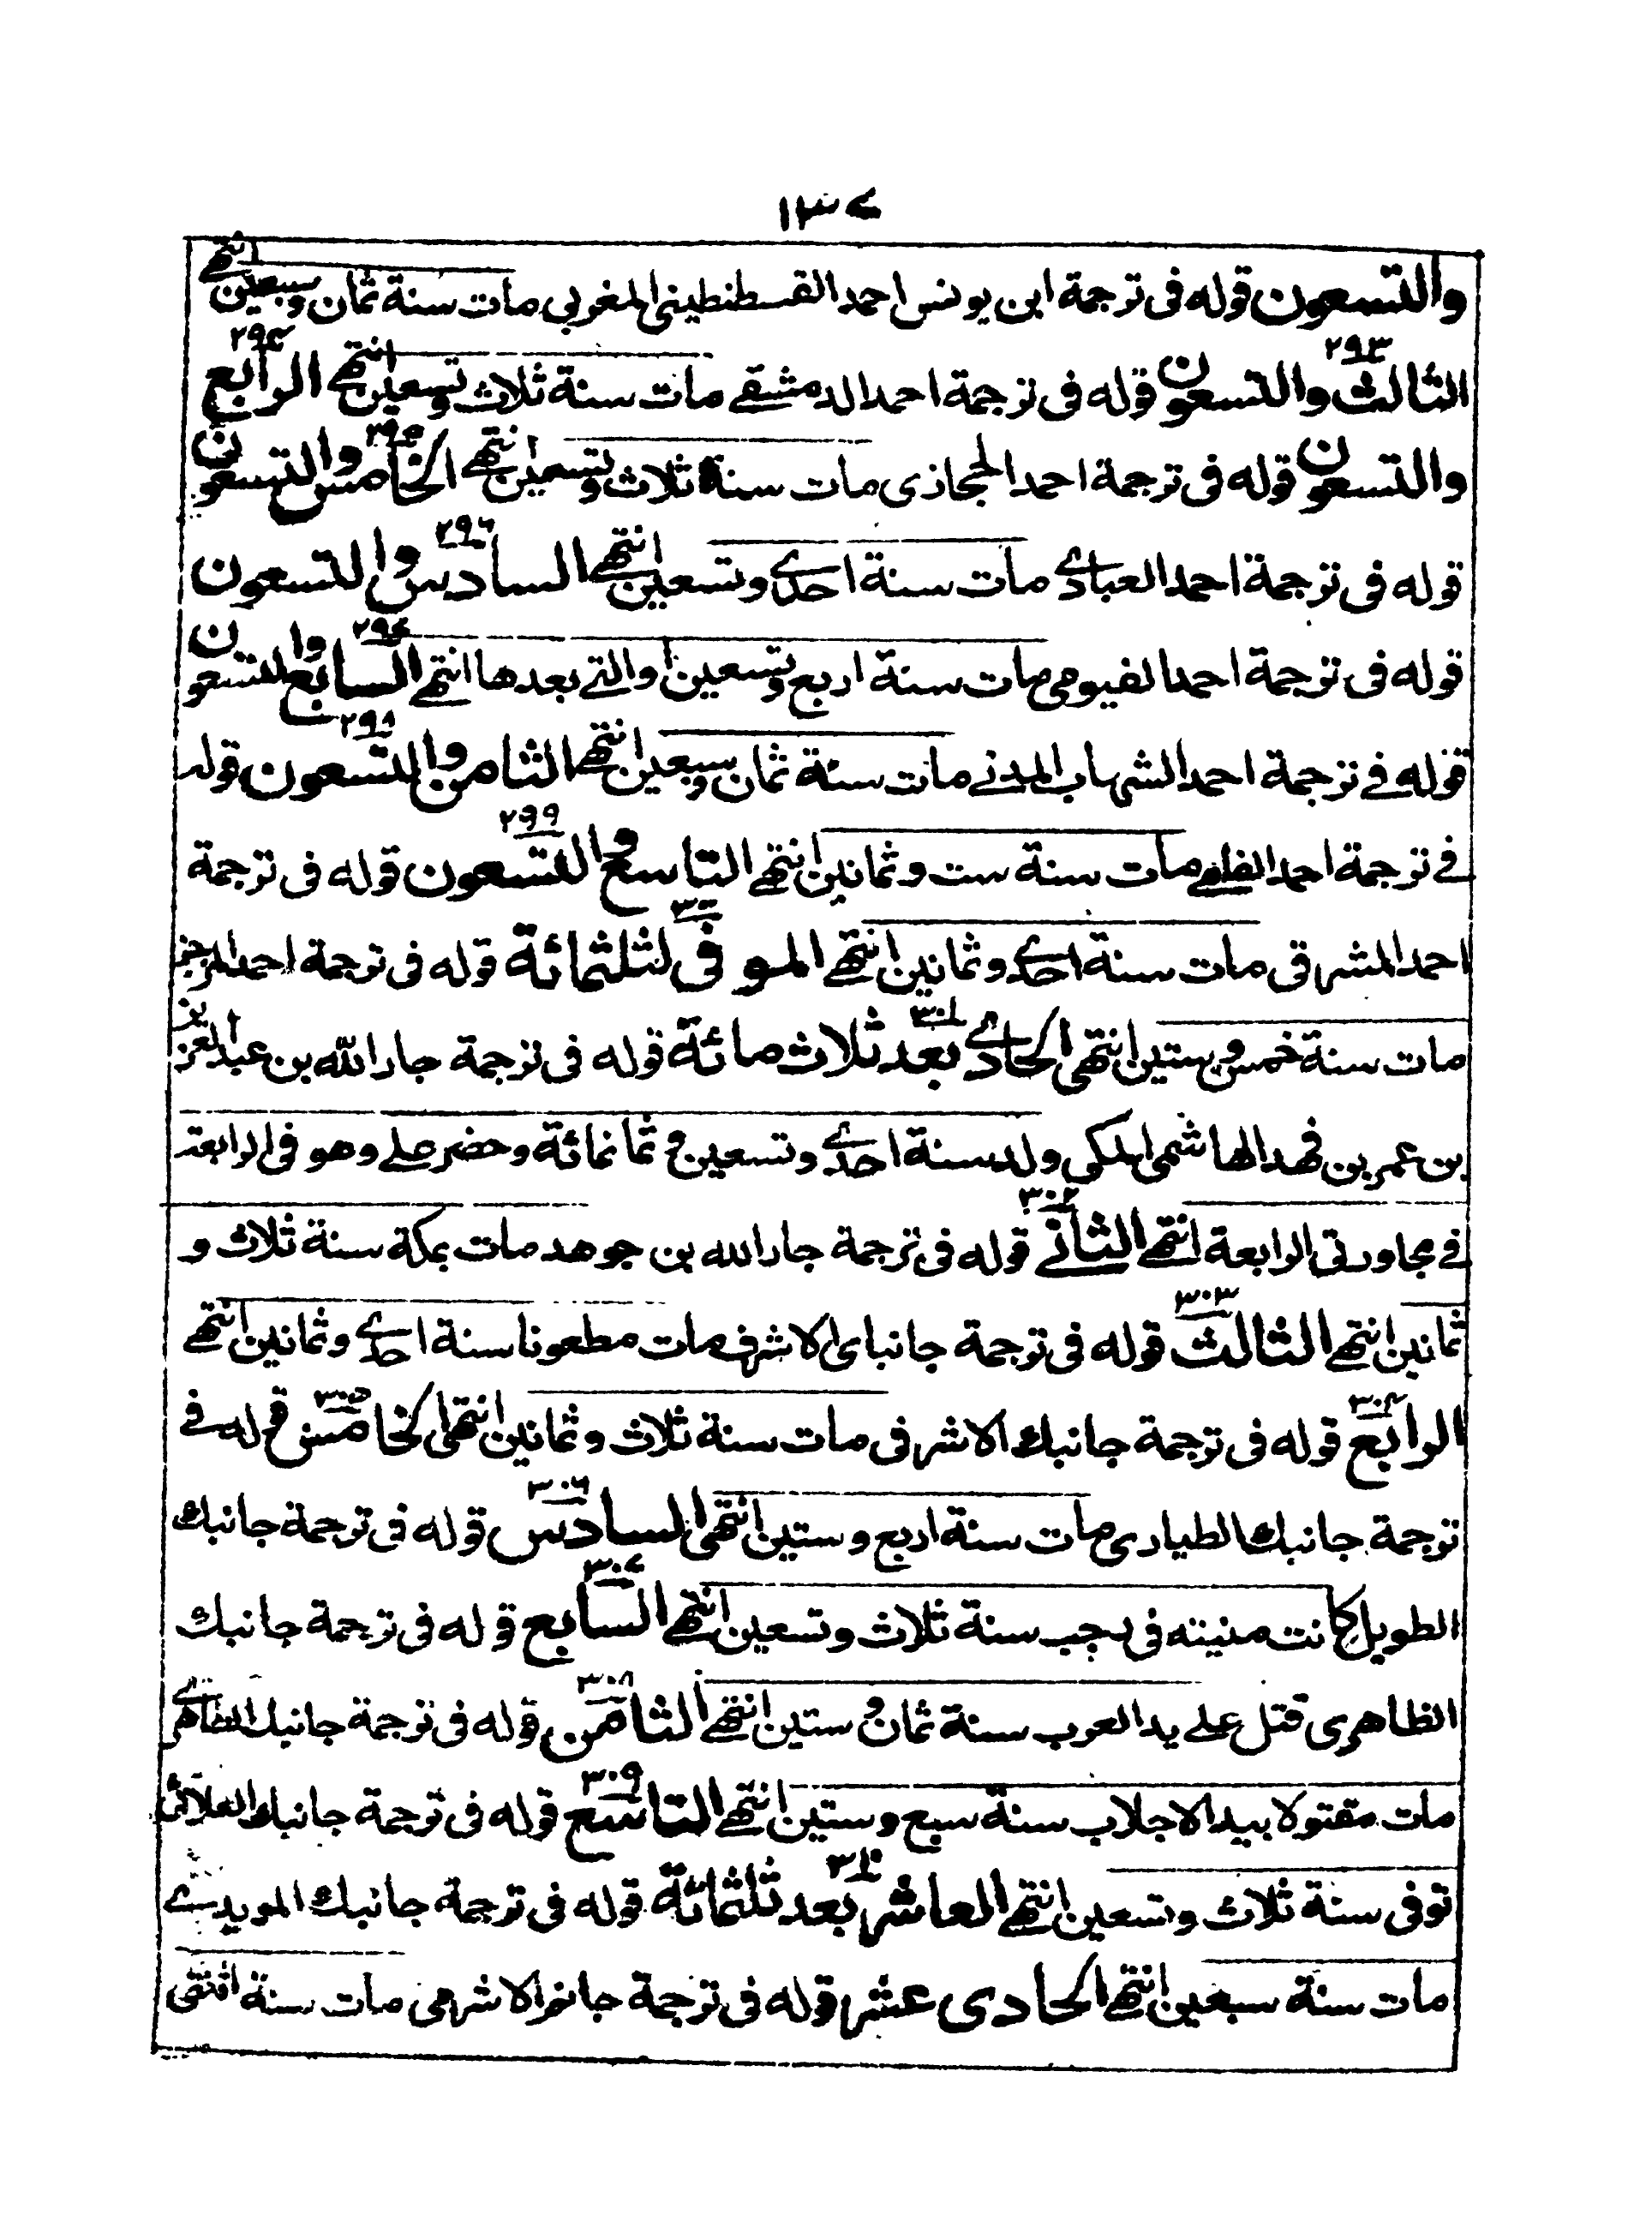 ١٣٧
والتسعون قوله فى ترجمة ابن يونس احمد القسطنطينى المغربى مات سنة ثمان وسبعين انتهى
٢٩٣ ٢٩٤
الثالث والتسعون قوله فى ترجمة احمد الدمشقے مات سنة ثلاث وتسعين انتهے الرابع
٢٩٥
والتسعون قوله فى ترجمة احمد الحجازى مات سنة ثلاث وتسعين انتهے الخامس والتسعون
٢٩٦
قوله فى ترجمة احمد العبادے مات سنة احدے وتسعين انتهے السادس والتسعون
٢٩٧
قوله فى ترجمة احمد الفيومى مات سنة اربع وتسعين او التے بعدها انتهے السابع والتسعون
٢٩٨
قوله فے ترجمة احمد الشهاب المدنے مات سنة ثمان وسبعين انتهے الثامن والتسعون قوله
٢٩٩
فے ترجمة احمد مات سنة ست وثمانين انتهے التاسع والتسعون قوله فى ترجمة
٣٠٠
احمد المشرقى مات سنة احدے وثمانين انتهے الموفى لثلثمائة قوله فى ترجمة احمد
٣٠١
مات سنة خمس وستين انتهى الحادے بعد ثلاث مائة قوله فى ترجمة جار الله بن عبد العزيز
بن عمر بن فهد الهاشمى المكى ولد سنة احدے وتسعين و ثمانمائة وحضر علے وهو فى الرابعة
٣٠٢
فے مجاورتى الرابعة انتهے الثانے قوله فى ترجمة جار الله بن جوهد مات بمكة سنة ثلاث و
٣٠٣
ثمانين انتهے الثالث قوله فى ترجمة جانباى الاشرف مات مطعونا سنة احدے وثمانين انتهے
٣٠٤ ٣٠٥
الرابع قوله فى ترجمة جانبك الاشرفى مات سنة ثلاث وثمانين انتهى الخامس قوله فے
٣٠٦
ترجمة جانبك الطيارى مات سنة اربع وستين انتهى السادس قوله فى ترجمة جانبك
٣٠٧
الطويل كانت منيته فى رجب سنة ثلاث وتسعين انتهے السابع قوله فى ترجمة جانبك
٣٠٨
الظاهرى قتل علے يد العرب سنة ثمان و ستين انتهے الثامن قوله فى ترجمة جانبك الظاهرى
٣٠٩
مات مقتولا بيد الاجلاب سنة سبع وستين انتهے التاسع قوله فى ترجمة جانبك العلائى
٣١٠
توفى سنة ثلاث وتسعين انتهے العاشر بعد ثلثمائة قوله فى ترجمة جانبك المويدے
مات سنة سبعين انتهے الحادى عشر قوله فى ترجمة جانم الاشرفى مات سنة